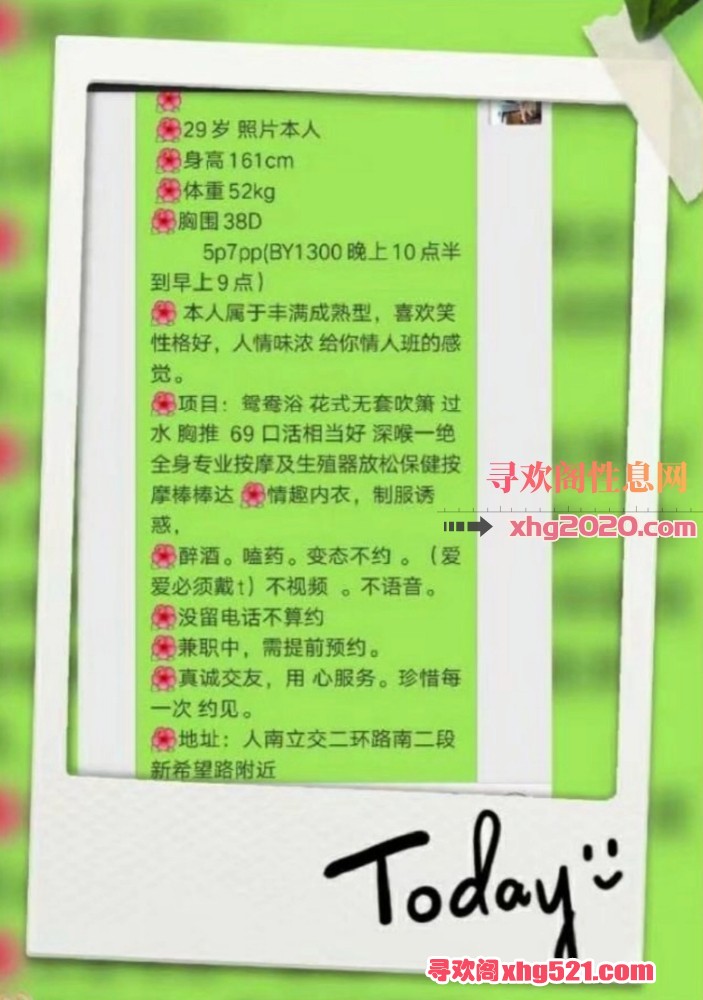 29岁 照片本人
身高161cm
体重52kg
胸围38D
5p7pp(BY1300晚上10点半
到早上9点)
本人属于丰满成熟型，喜欢笑
性格好，人情味浓 给你情人班的感
觉。
项目：鸳鸯浴 花式无套吹箫 过
水 胸推 69 口活相当好 深喉一绝
全身专业按摩及生殖器放松保健按
摩棒棒达 情趣内衣，制服诱
惑，
醉酒。嗑药。变态不约 。（爱
爱必须戴t）不视频 。不语音。
没留电话不算约
兼职中，需提前预约。
真诚交友，用 心服务。珍惜每
一次 约见。
地址：人南立交二环路南二段
新希望路附近
寻欢阁性息网
xhg2020.com
Today
寻欢阁xhg521.com